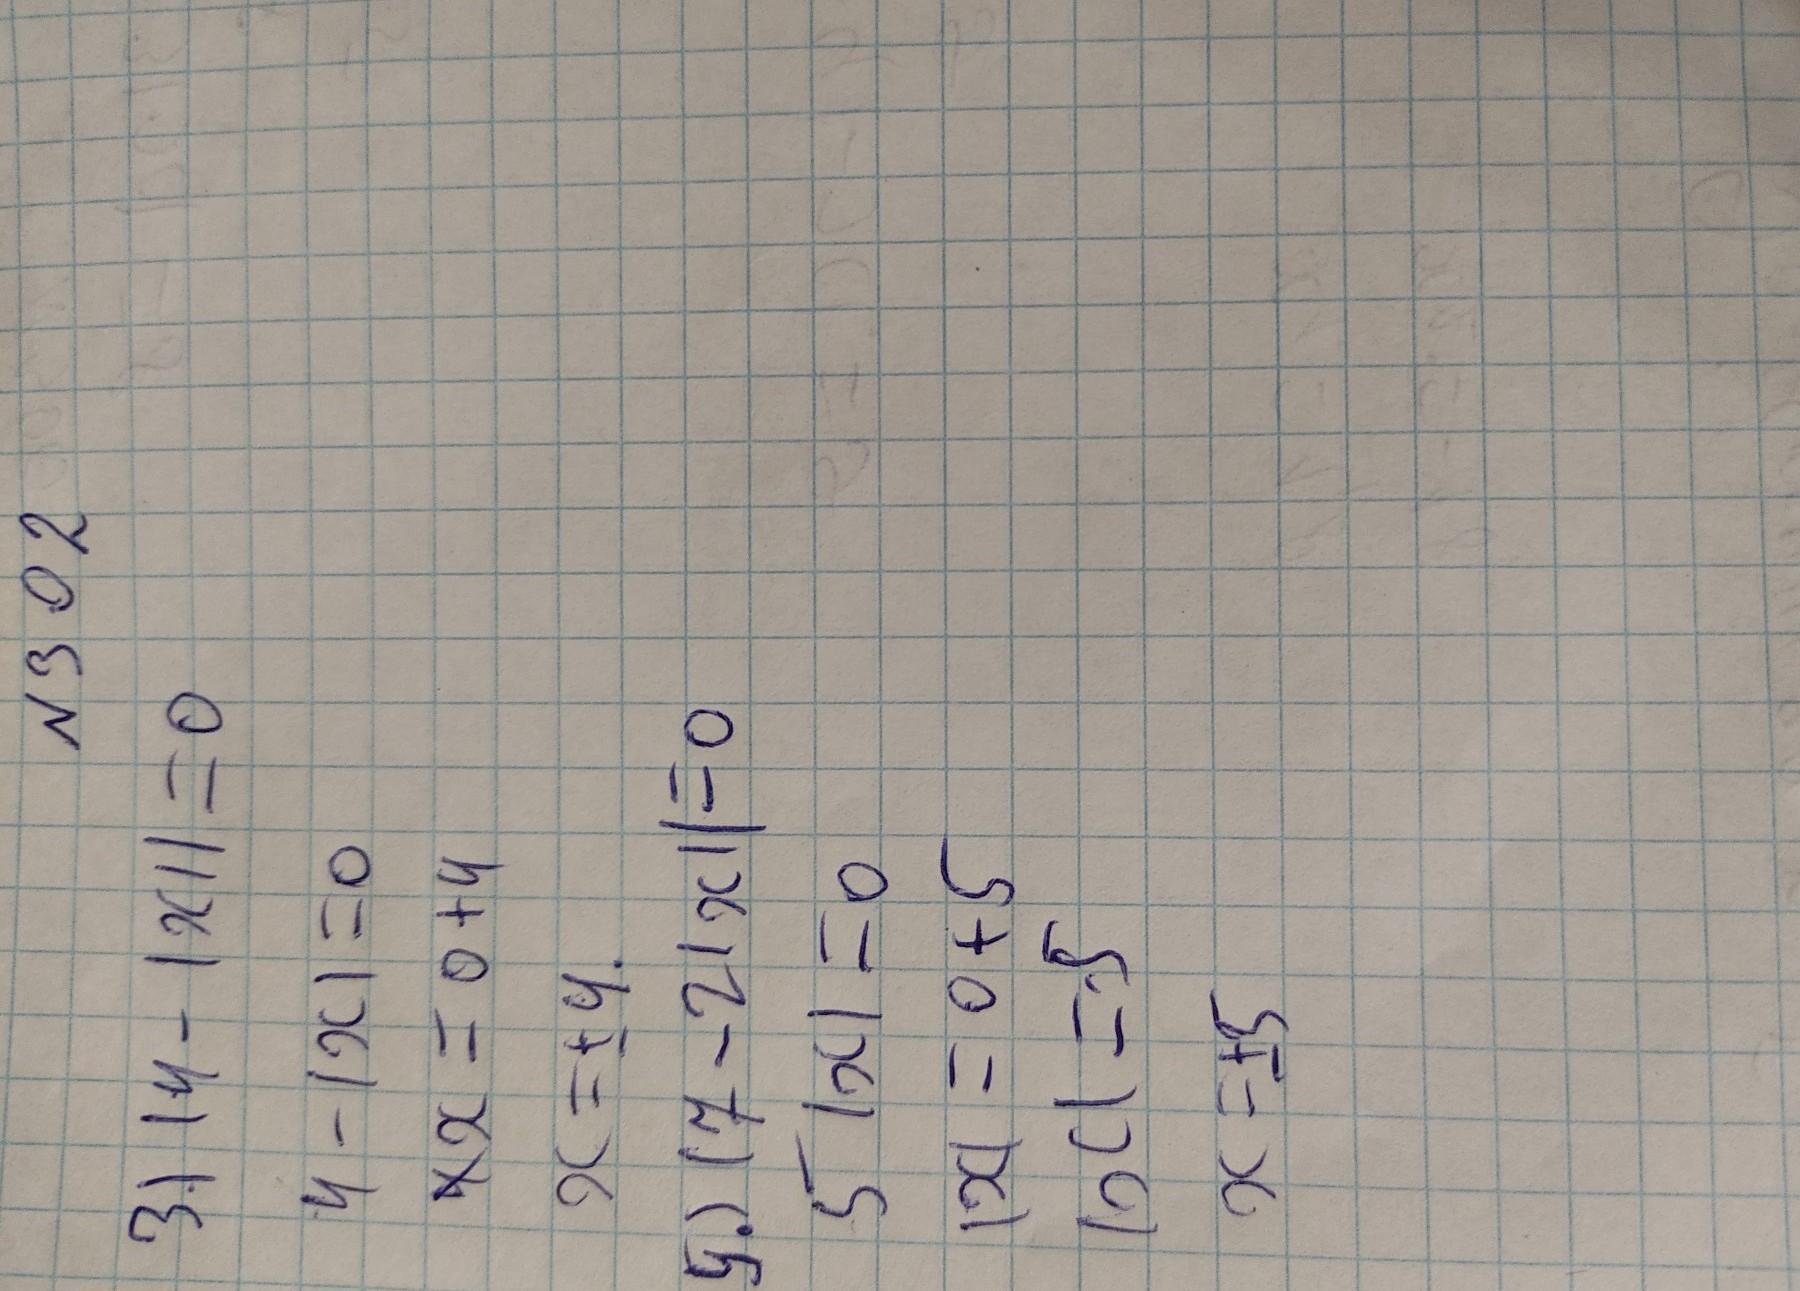 N 302
3) |4 - |x|| = 0
4 - |x| = 0
x = 0 + 4
x = ±4.
4.) |7 - 2|x|| = 0
5 |x| = 0
|x| = 0 + 5
|x| = 5
x = ±5